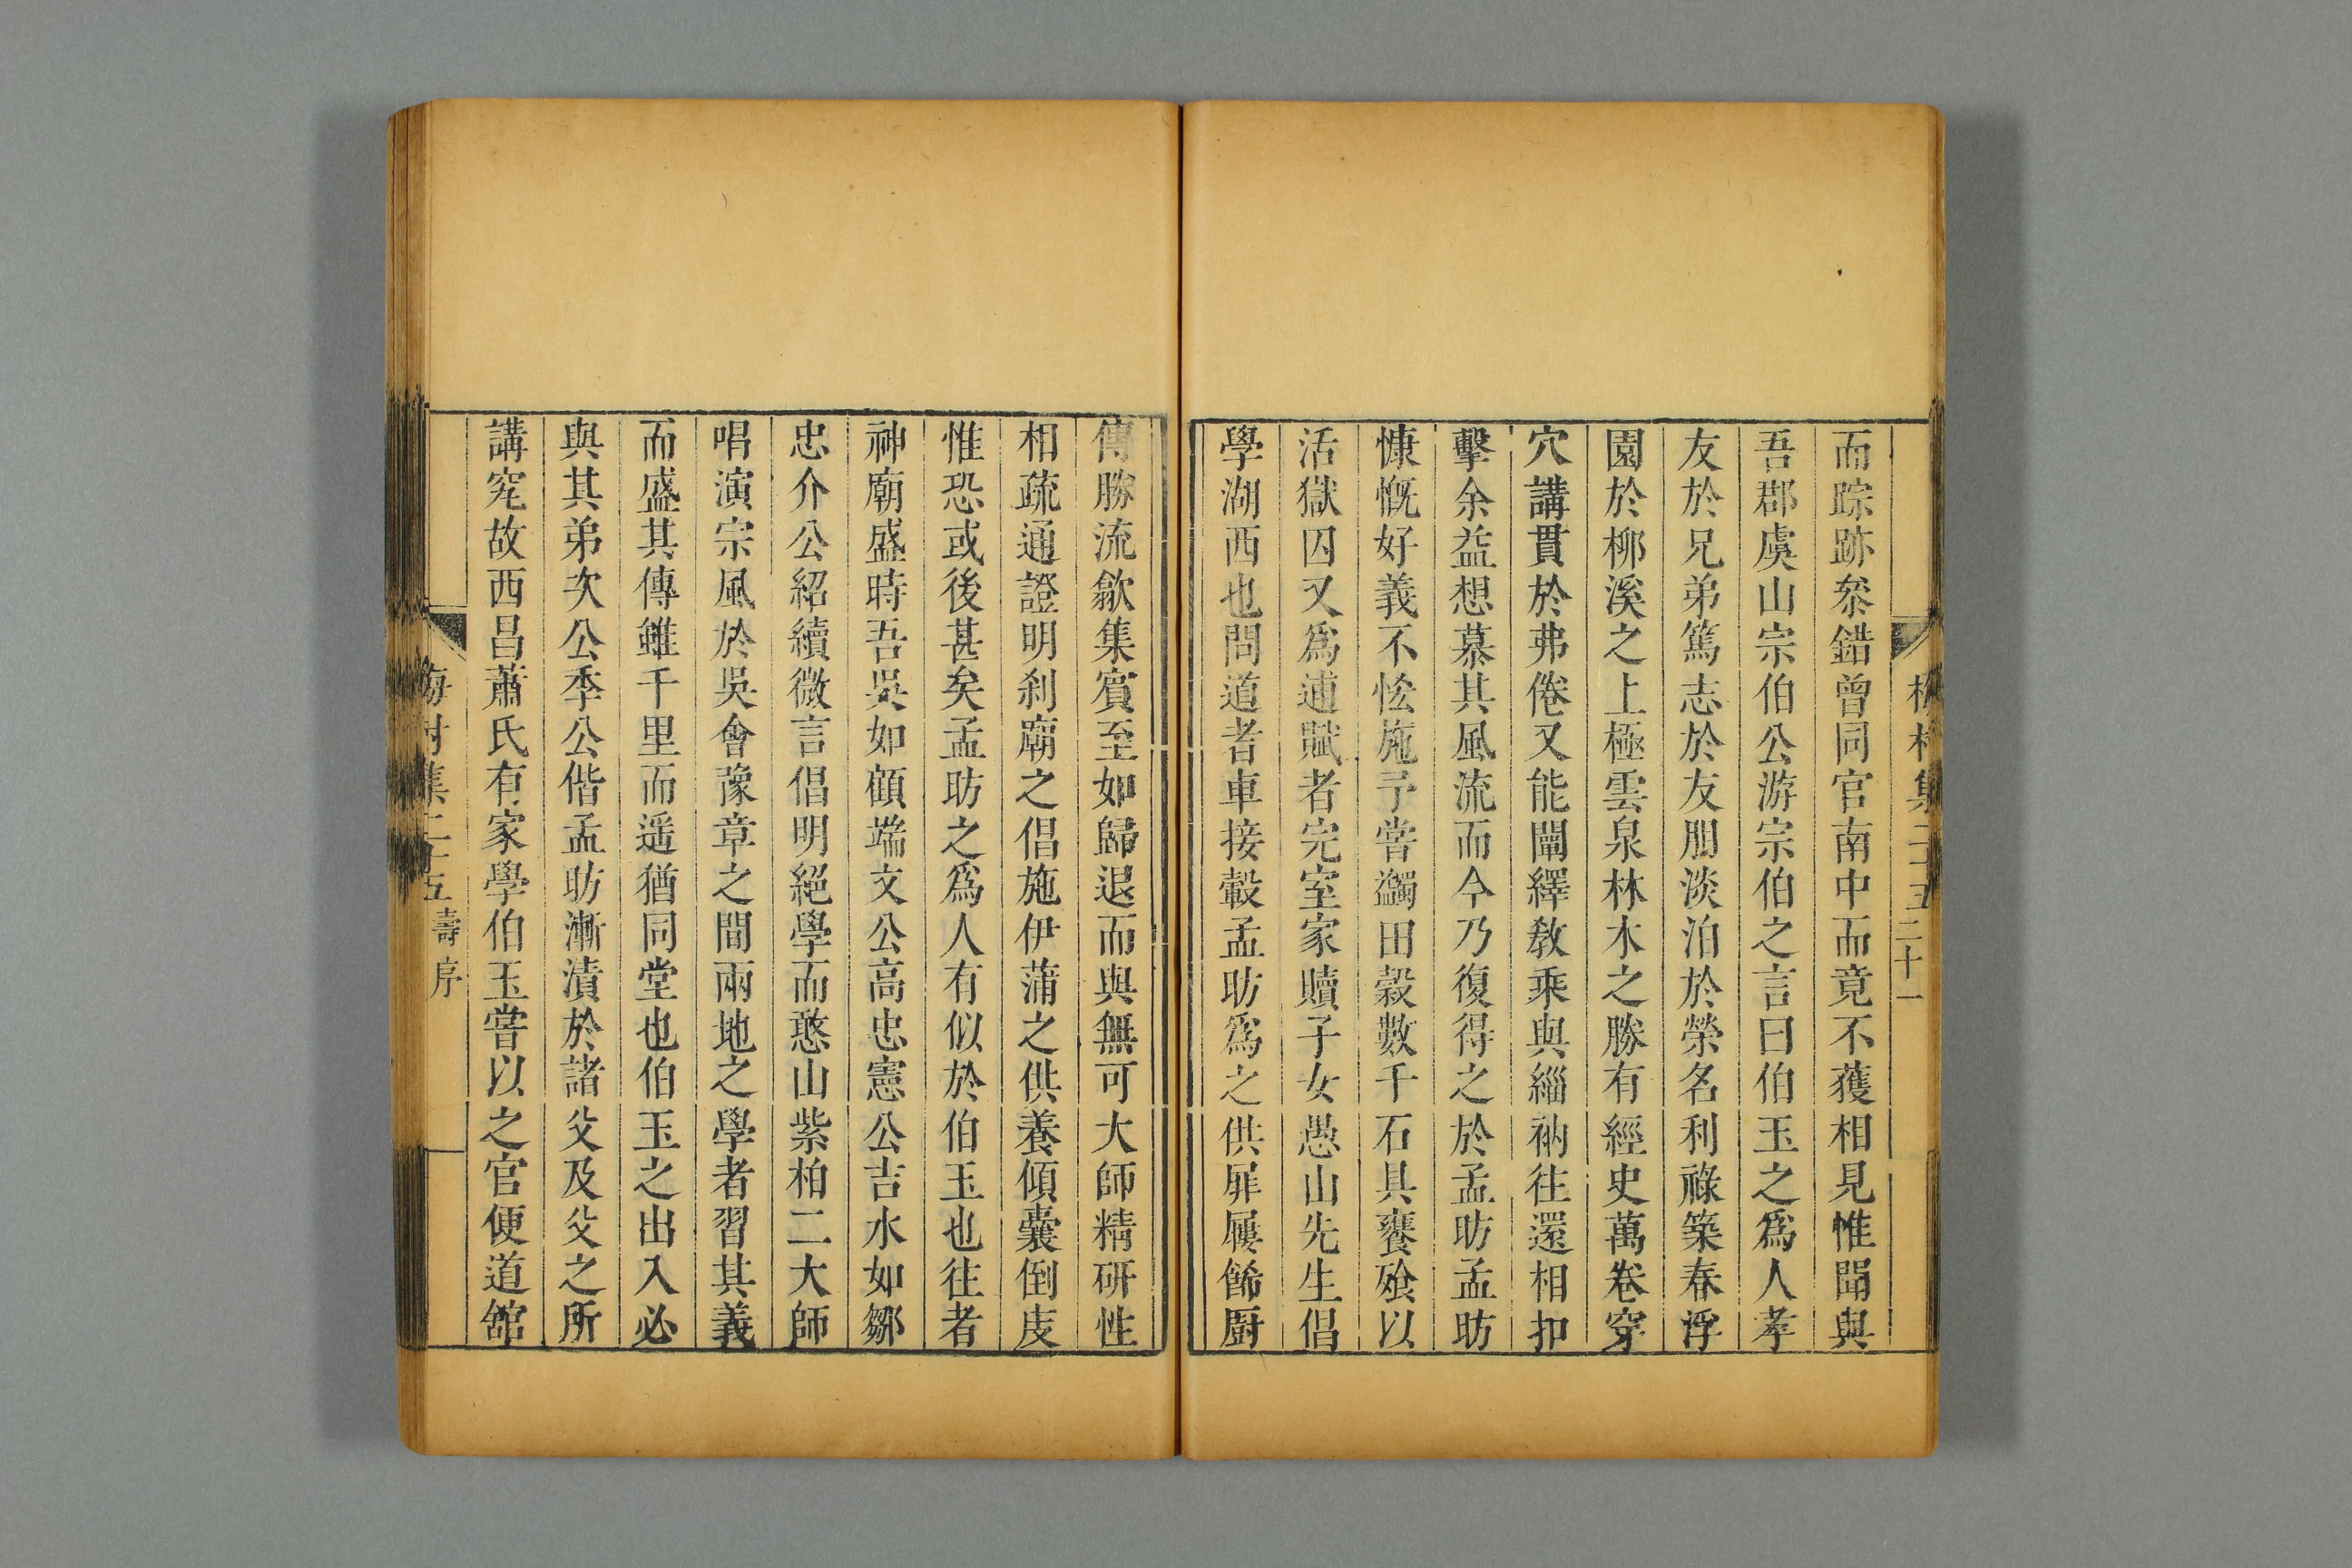 而踪跡叅錯曾同官南中而竟不獲相見惟聞與
吾郡虞山宗伯公游宗伯之言曰伯玉之爲人孝
友於兄弟篤志於友朋淡泊於榮名利祿築春浮
園於柳溪之上極雲泉林木之勝有經史萬卷穿
穴講貫於弗倦又能闡繹敎乘與緇衲往還相扣
擊余益想慕其風流而今乃復得之於孟昉孟昉
慷慨好義不恡施予嘗蠲田穀數千石具饔飧以
活獄囚又爲逋賦者完室家贖子女愚山先生倡
學湖西也問道者車接轂孟昉爲之供屝屨餙厨
傳勝流歙集賓至如歸退而與無可大師精研性
相疏通證明刹廟之倡施伊蒲之供養傾囊倒庋
惟恐或後甚矣孟昉之爲人有似於伯玉也往者
神廟盛時吾吳如顧端文公高忠憲公吉水如鄒
忠介公紹續微言倡明絕學而憨山紫柏二大師
唱演宗風於吳會豫章之間兩地之學者習其義
而盛其傳雖千里而遥猶同堂也伯玉之出入必
與其弟次公季公偕孟昉漸漬於諸父及父之所
講究故西昌蕭氏有家學伯玉嘗以之官便道舘
梅村集二十五 二十一
梅村集二十五 壽序